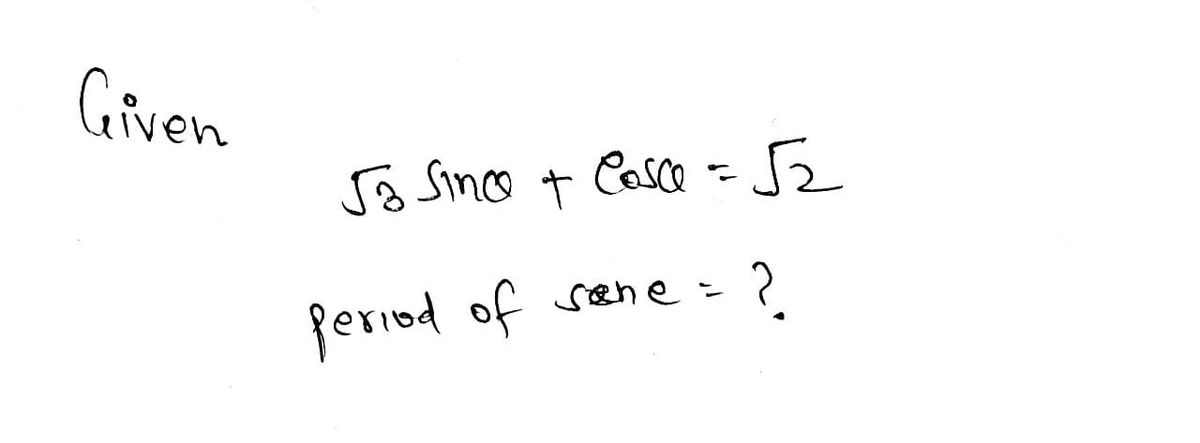 Given
√3 Sinα + Cosα = √2
period of sene = ?